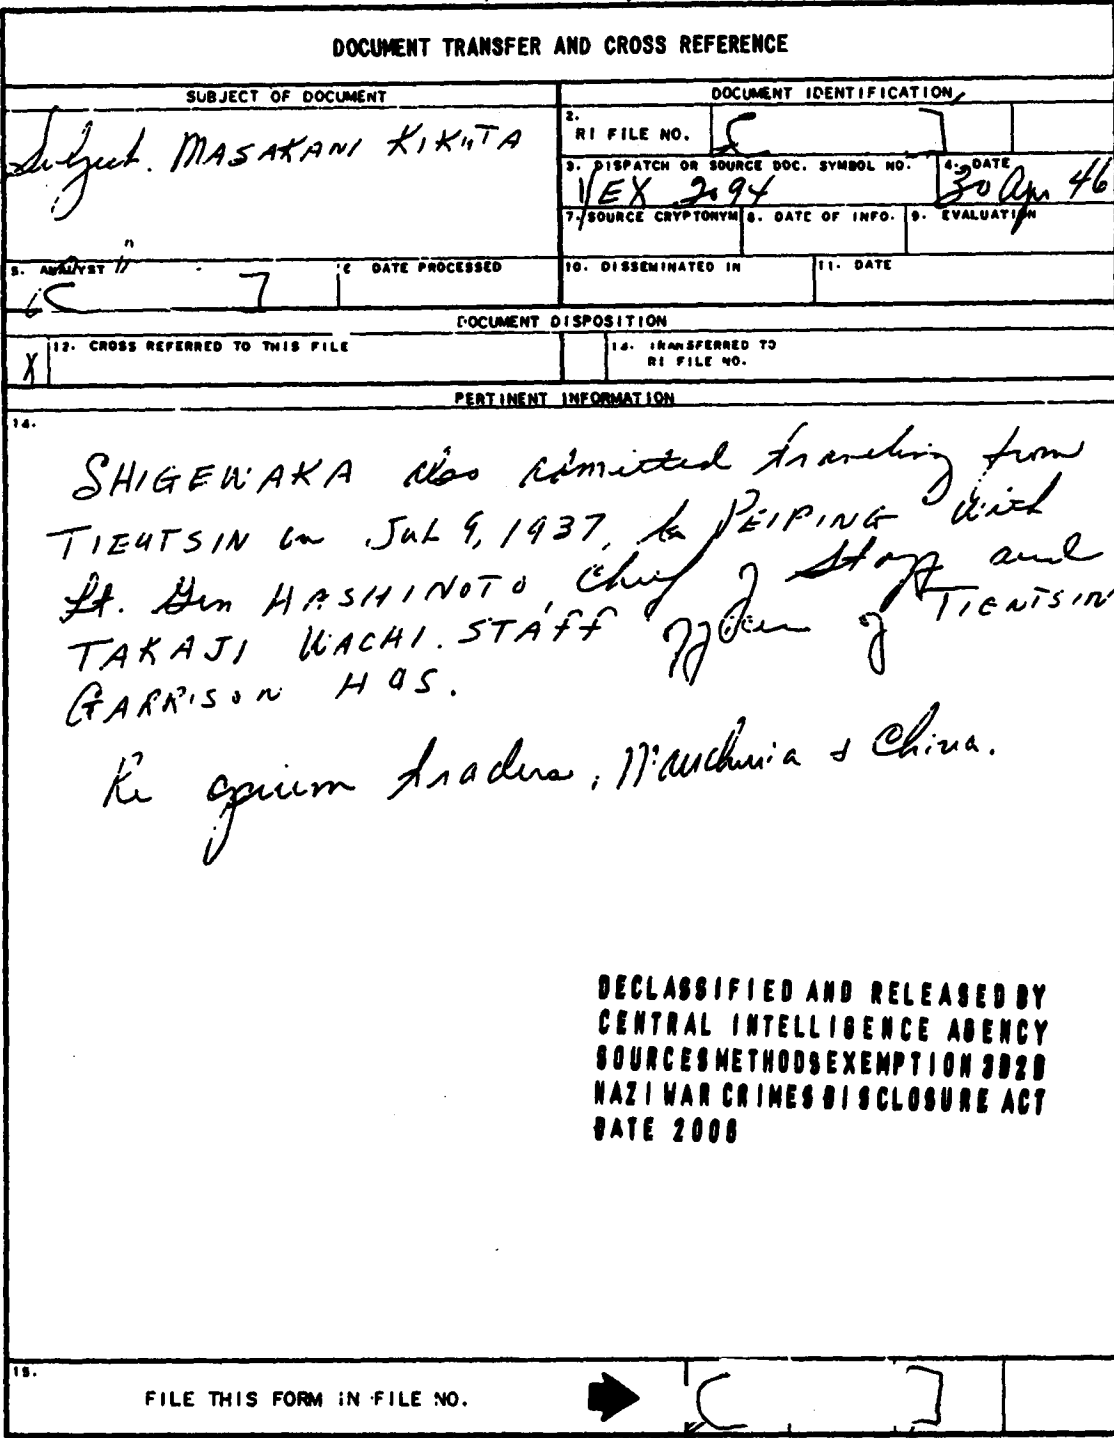 DOCUMENT TRANSFER AND CROSS REFERENCE
SUBJECT OF DOCUMENT
DOCUMENT IDENTIFICATION
Subject. MASAKANI KIKUTA
2. RI FILE NO.
3. DISPATCH OR SOURCE DOC. SYMBOL NO.
VEX 2094
4. DATE
30 Apr 46
7. SOURCE CRYPTONYM
8. DATE OF INFO.
9. EVALUATION
5. ANALYST
6 DATE PROCESSED
10. DISSEMINATED IN
11. DATE
DOCUMENT DISPOSITION
X
12. CROSS REFERRED TO THIS FILE
13. TRANSFERRED TO
RI FILE NO.
PERTINENT INFORMATION
14.
SHIGEWAKA also admitted traveling from
TIENTSIN on Jul 9, 1937, to PEIPING with
Lt. Gen HASHINOTO, Chief of Staff and
TAKAJI WACHI. STAFF officer of TIENTSIN
GARRISON HQS.
Re opium traders, Manchuria & China.
DECLASSIFIED AND RELEASED BY
CENTRAL INTELLIGENCE AGENCY
SOURCES METHODS EXEMPTION 3B2B
NAZI WAR CRIMES DISCLOSURE ACT
DATE 2006
15.
FILE THIS FORM IN FILE NO.